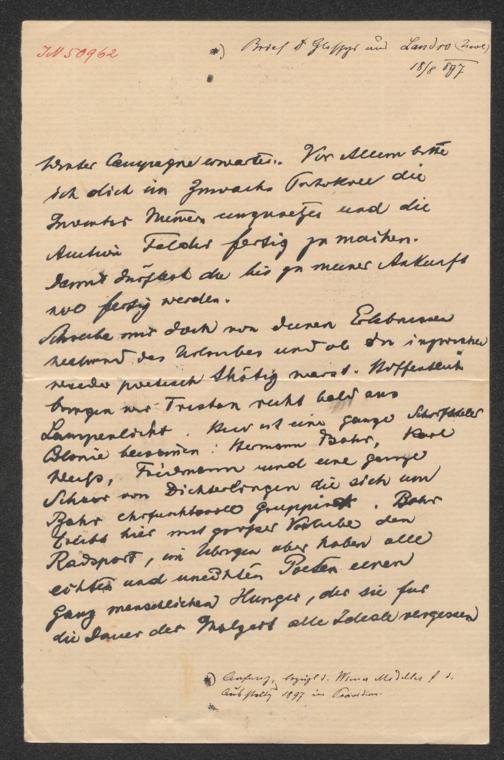 IN 50962
*) Brief v Glossy und Landro (Tirol)
18/8 897
Winter Campagne erwartet. Vor Allem bitte
ich dich im Zuwachs Protokoll die
Inventar Numern einzusetzen und die
Autoren Felder fertig zu machen.
Damit dürftest du bis zu meiner Ankunft
wol fertig werden.
Schreibe mir doch von deinen Erlebnissen
während des Urlaubes und ob du inzwischen
wieder poetisch thätig warst. Hoffentlich
bringen wir Tristan recht bald ans
Lampenlicht. Hier ist eine ganze Schriftsteller
Colonie beisamen: Hermann Bahr, Karl
Weiß, Friedmann und eine ganze
Schaar von Dichterlingen die sich um
Bahr ehrfurchtsvoll gruppirt. Bahr
treibt hier mit großer Vorliebe den
Radsport, im übrigen aber haben alle
echten und unechten Poeten einen
ganz menschlichen Hunger, der sie für
die Dauer der Malzeit alle Ideale vergessen
*) Anfang, bezügl. d. Wiener Medailleure f. d.
Ausstellg 1897 im